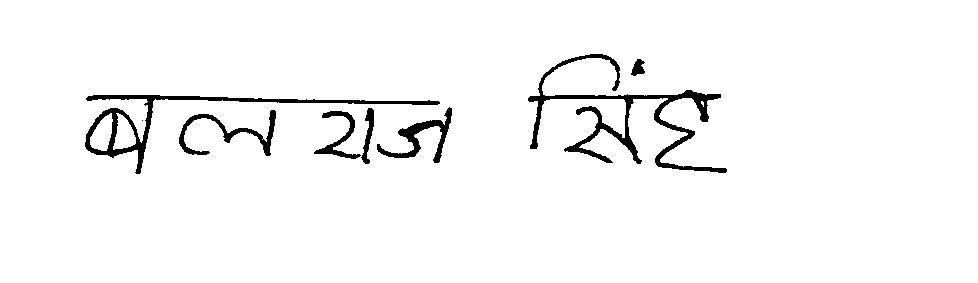 बलराज सिंह